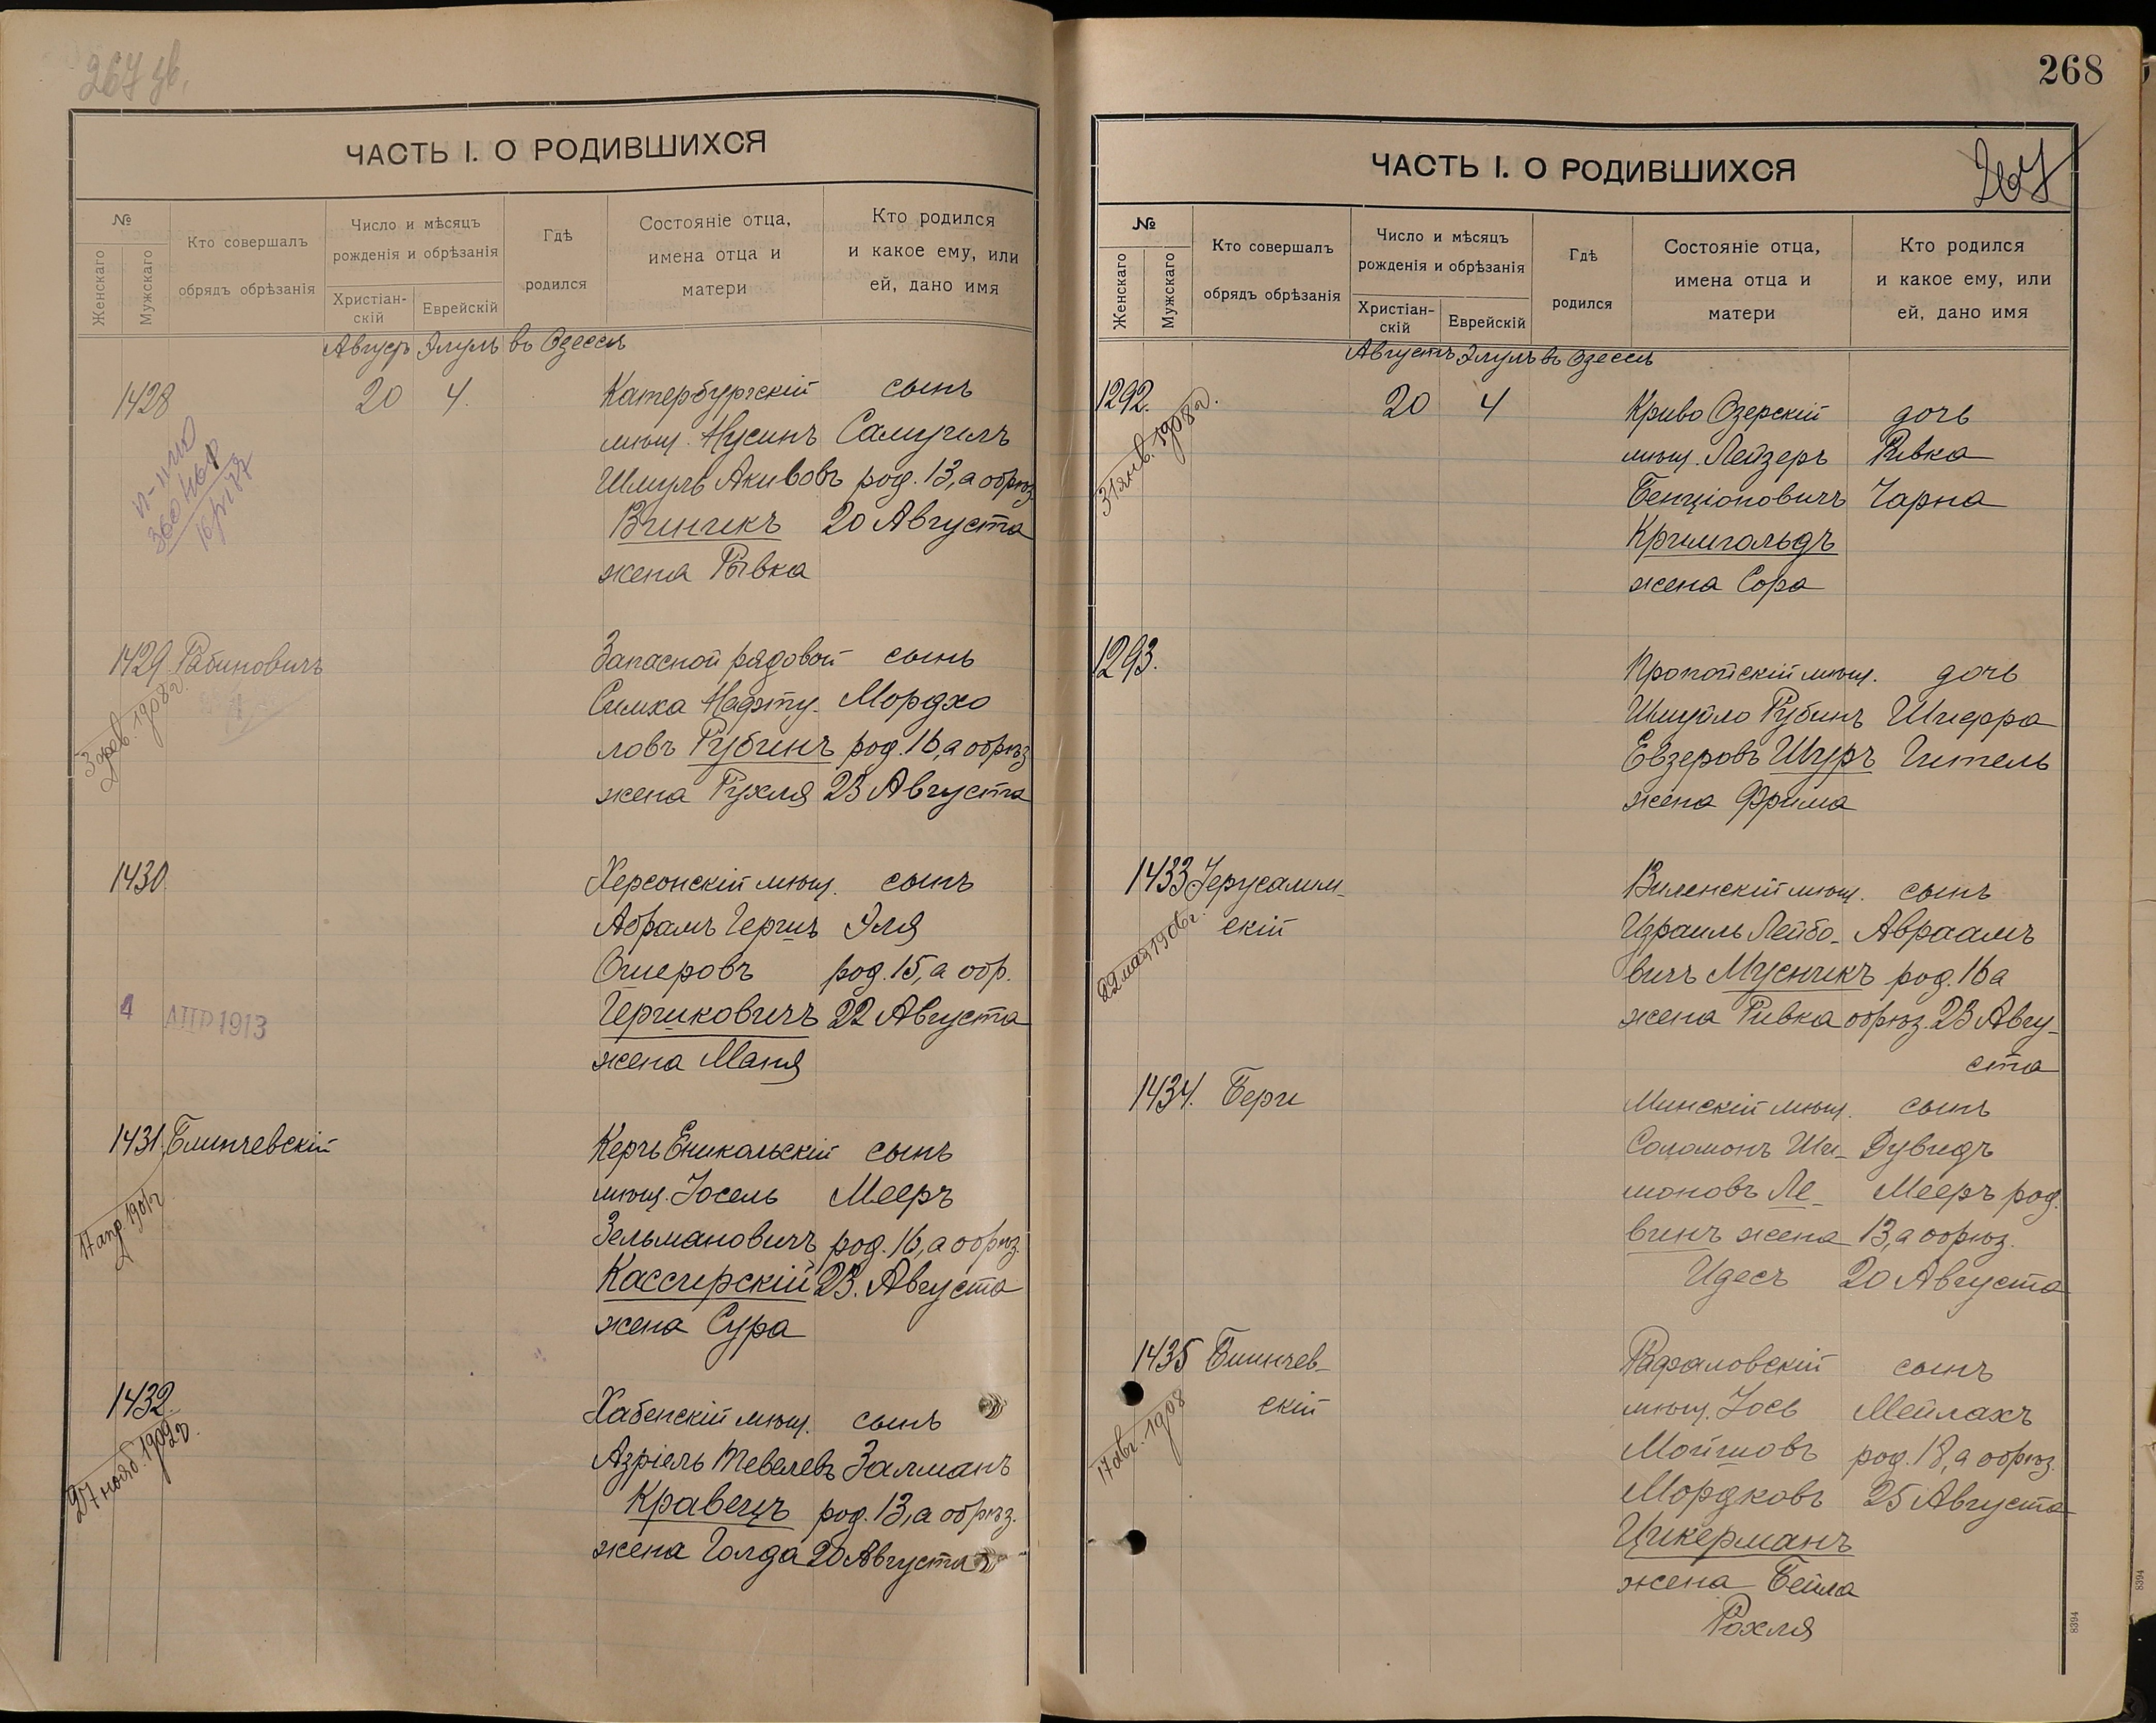 267 об.
ЧАСТЬ I. О РОДИВШИХСЯ
№
Женскаго
Мужскаго
Кто совершалъ
обрядъ обрѣзанія
Число и мѣсяцъ
рожденія и обрѣзанія
Христіан-
скій
Еврейскій
Гдѣ
родился
Состояніе отца,
имена отца и
матери
Кто родился
и какое ему, или
ей, дано имя
Августъ Элулъ въ Одессѣ
1428 20 4. Катербургскій сынъ
мѣщ. Нусинъ Самуилъ
Шмуль Акивовъ род. 13, а обрѣз
20 Августа
жена Рывка
1429 Рабиновичъ Запасной рядовой сынъ
3 фев. 1908 г.
Симха Нафту- Мордхо
ловъ Рубинъ род. 16, а обрѣз
жена Рухля 23 Августа
1430 Херсонскій мѣщ. сынъ
Абрамъ Гершъ Эля
Ошеровъ род. 15, а обр.
Гершковичъ 22 Августа
4 АПР 1913
жена Маня
1431 Блинчевскій Керчь Еникольскій сынъ
17 апр. 1901 г
мѣщ. Іосель Мееръ
Зельмановичъ род. 16, а обрѣз.
Кассирскій 23. Августа
жена Сура
1432. Хабенскій мѣщ. сынъ
27 нояб. 1909 г.
Азріель Тевелевъ Залманъ
Кравецъ род. 13, а обрѣз.
жена Голда 20 Августа
268
267
ЧАСТЬ I. О РОДИВШИХСЯ
№
Женскаго
Мужскаго
Кто совершалъ
обрядъ обрѣзанія
Число и мѣсяцъ
рожденія и обрѣзанія
Христіан-
скій
Еврейскій
Гдѣ
родился
Состояніе отца,
имена отца и
матери
Кто родился
и какое ему, или
ей, дано имя
Августъ Элулъ въ Одессѣ
1292. 20 4 Криво Озерскій дочь
31 янв. 1908 г.
мѣщ. Лейзеръ Ривка
Бенціоновичъ Чарна
Кримгольдъ
жена Сора
1293. Пропойскій мѣщ. дочь
Шмуйло Рубинъ Шифра
Евзеровъ Шуръ Гитель
жена Фрима
1433 Іерусалим- Виленскій мѣщ. сынъ
скій Израиль Лейбо- Авраамъ
22 мая 1906 г.
вичъ Мусникъ род. 16 а
жена Ривка обрѣз. 23 Авгу-
ста
1434. Берг Минскій мѣщ. сынъ
Соломонъ Ши- Дувидъ
моновъ Ле- Мееръ род.
винъ жена 13, а обрѣз.
Идесъ 20 Августа
1435 Блинчев- Рафаловскій сынъ
скій мѣщ. Іось Мейлахъ
17 авг. 1908
Мойшовъ род. 18, а обрѣз.
Мордковъ 25 Августа
Цикерманъ
жена Бейла
Рохля
8394
8394